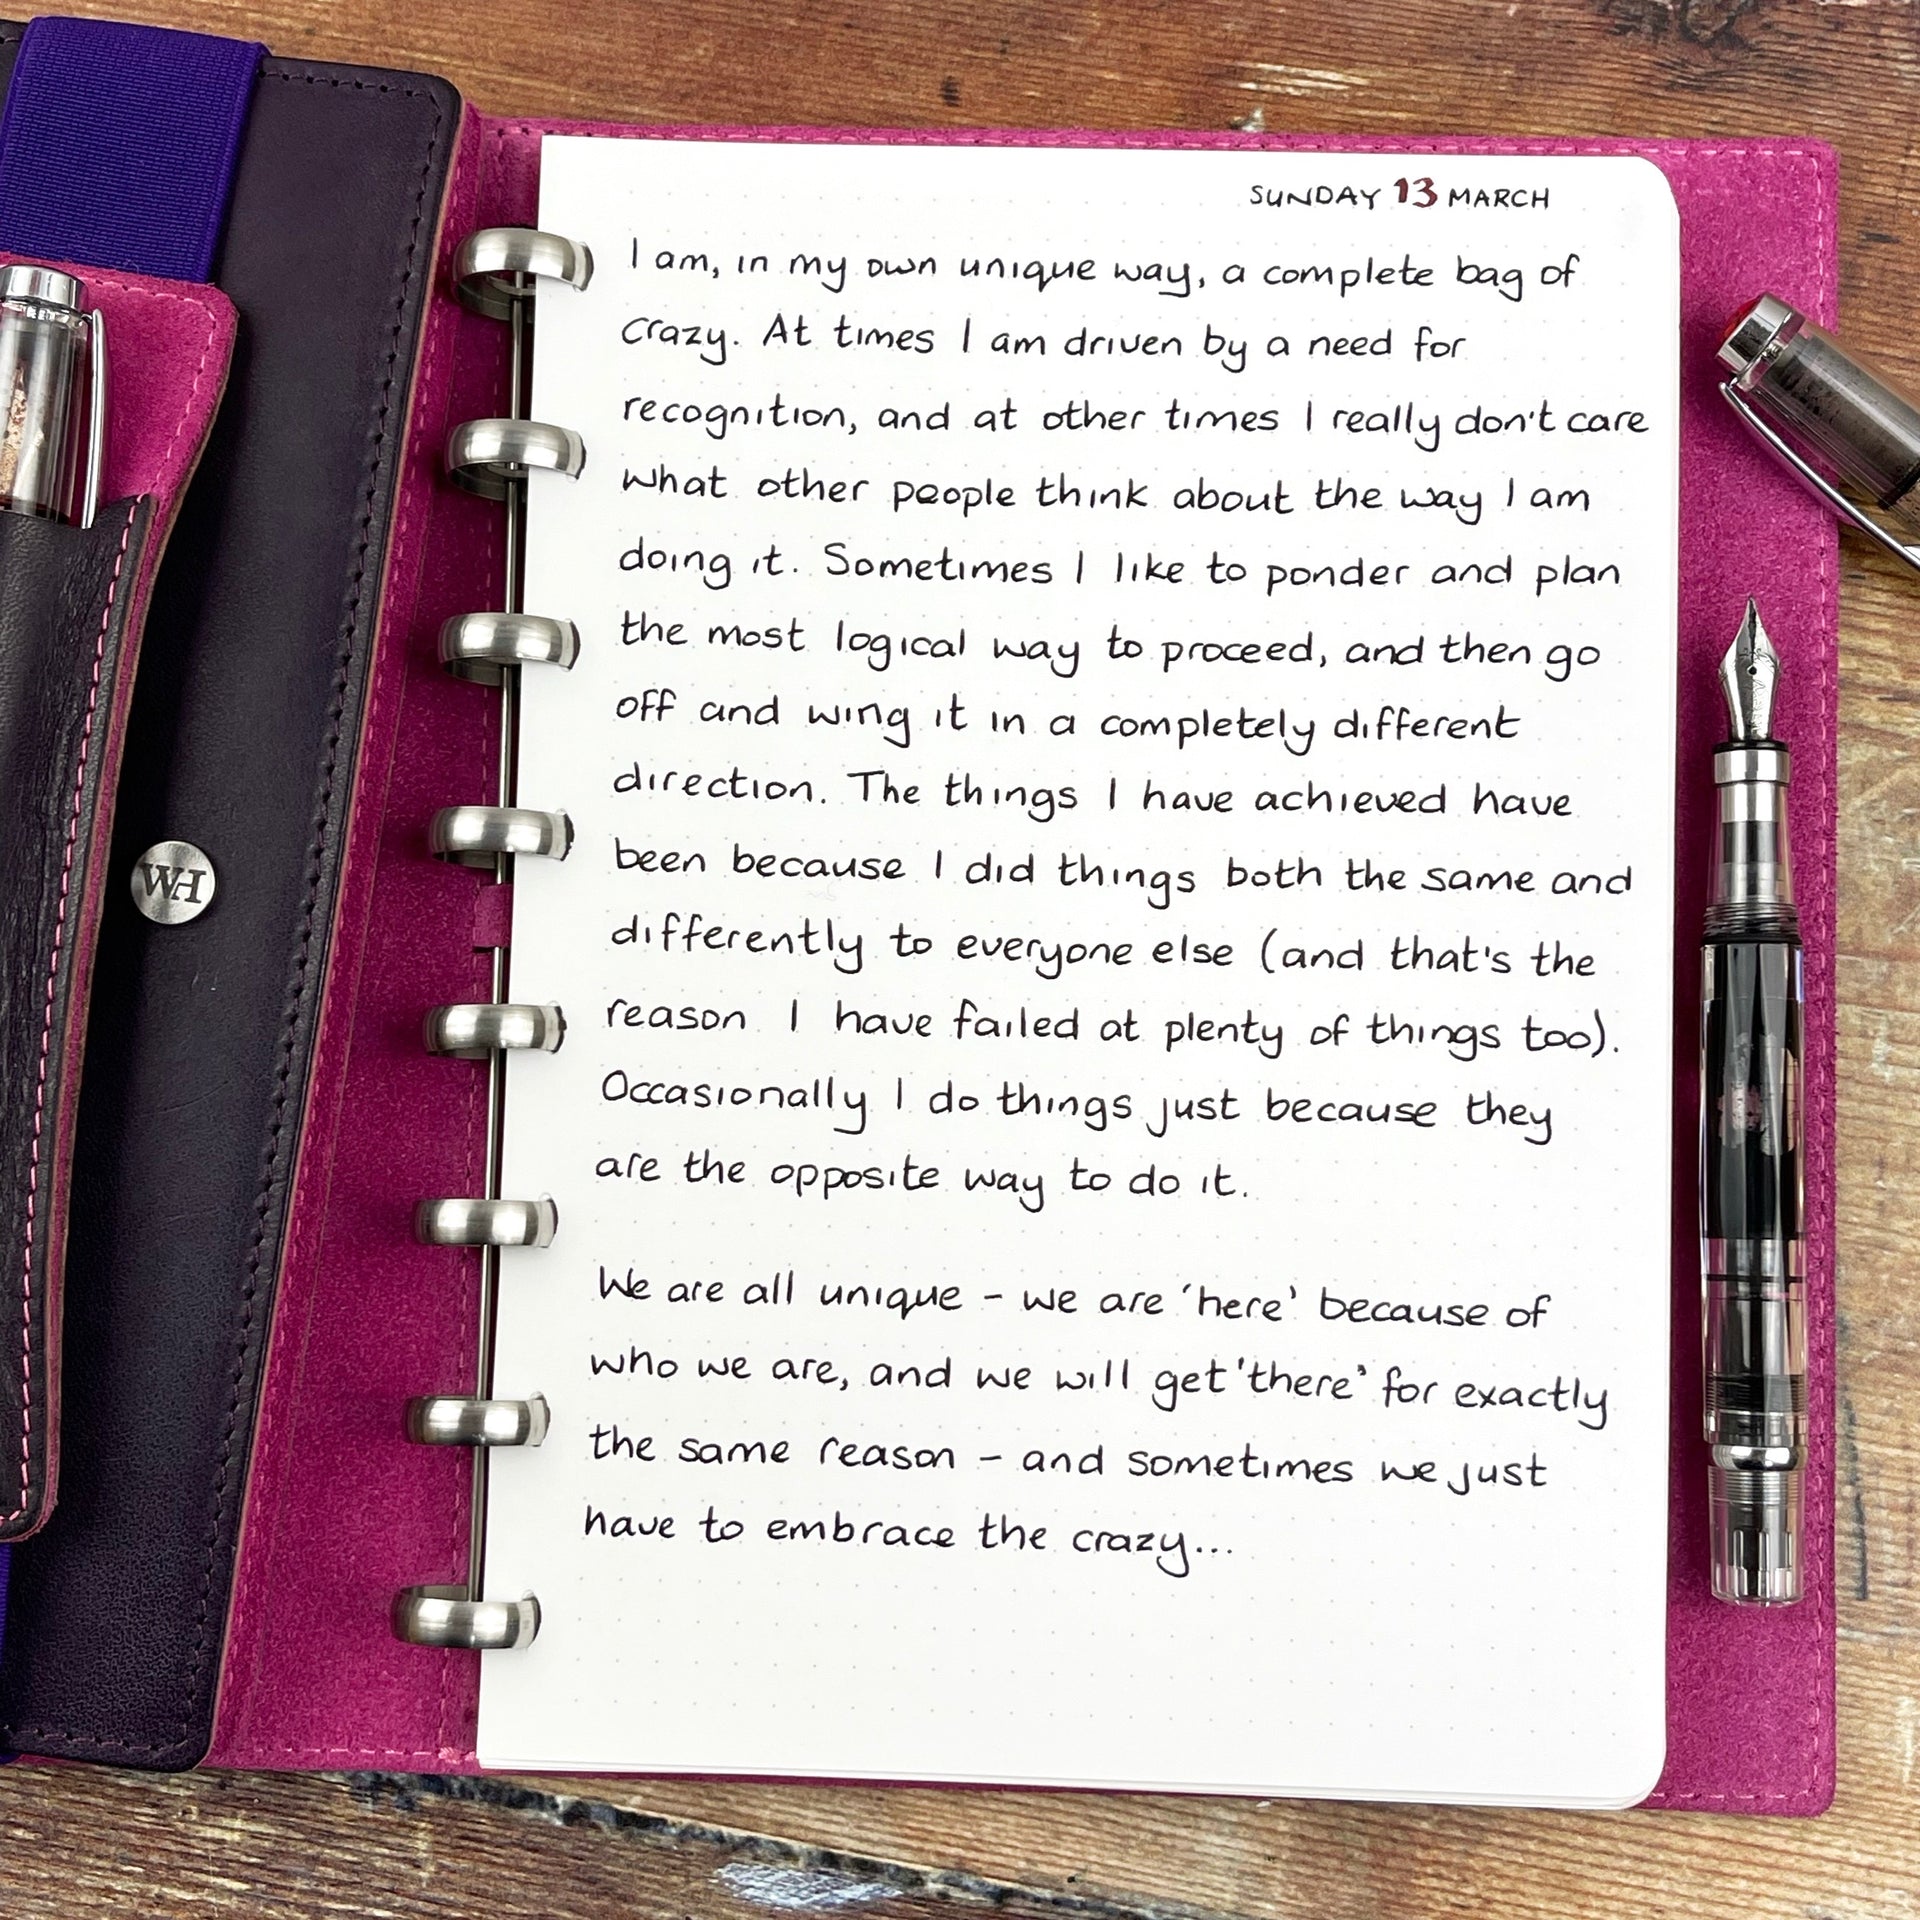 SUNDAY 13 MARCH
I am, in my own unique way, a complete bag of
crazy. At times I am driven by a need for
recognition, and at other times I really don't care
what other people think about the way I am
doing it. Sometimes I like to ponder and plan
the most logical way to proceed, and then go
off and wing it in a completely different
direction. The things I have achieved have
been because I did things both the same and
differently to everyone else (and that's the
reason I have failed at plenty of things too).
Occasionally I do things just because they
are the opposite way to do it.
We are all unique - we are 'here' because of
who we are, and we will get 'there' for exactly
the same reason - and sometimes we just
have to embrace the crazy...
WH